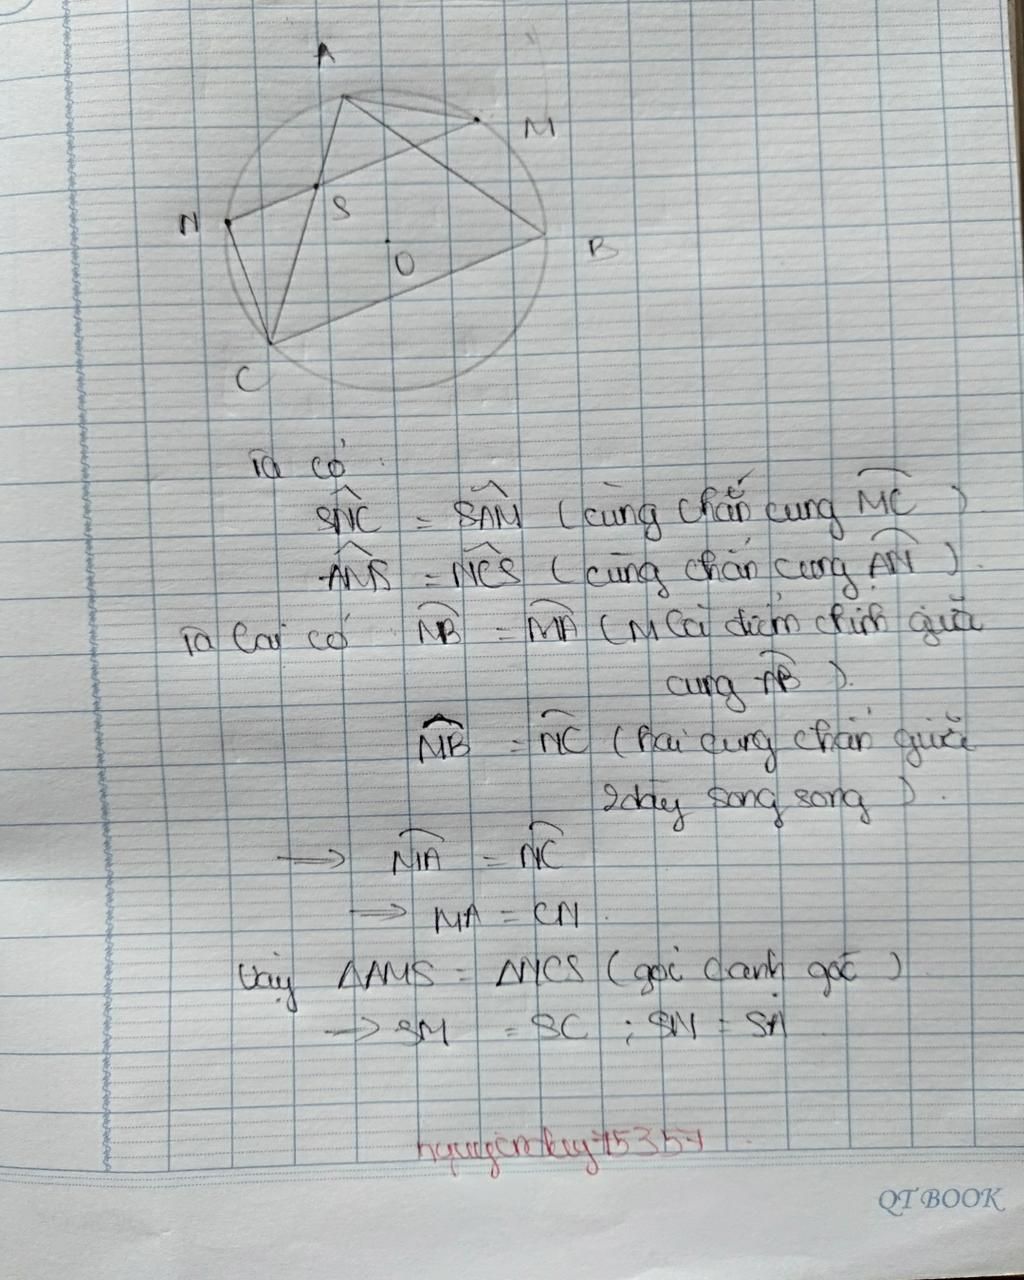 A
M
N
S
B
O
C
Ta có
SNC = SAM (cùng chắn cung MC)
AMS = NCS (cùng chắn cung AN).
Ta lại có MB = MA (M là điểm chính giữa
cung AB).
MB = NC (hai cung chắn giữa
2 dây song song).
→ MA = NC
→ MA = CN.
Vậy ΔAMS = ΔNCS (góc cạnh góc)
→ SM = SC ; SN = SA
QT BOOK